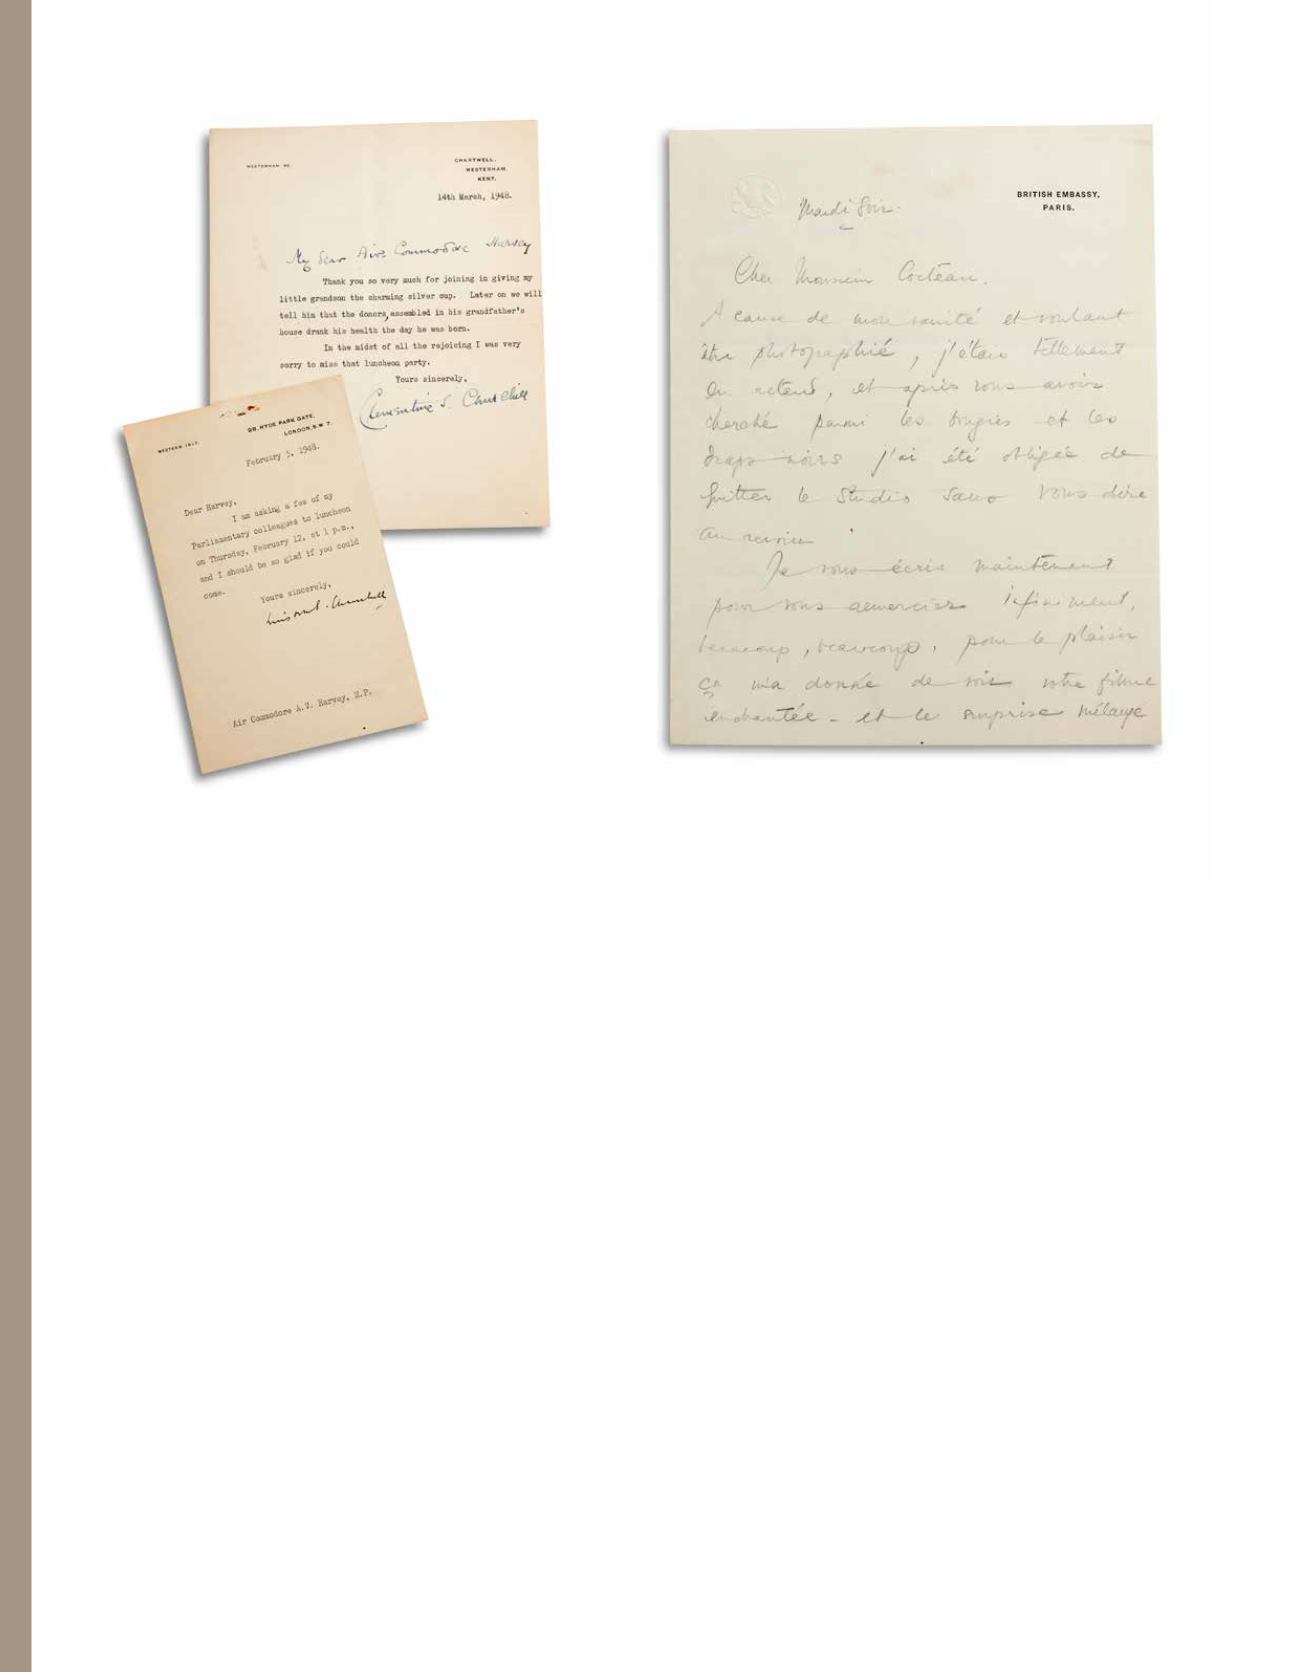 WESTERHAM 93.
CHARTWELL,
WESTERHAM,
KENT.
14th March, 1948.
My dear Air Commodore Harvey
Thank you so very much for joining in giving my
little grandson the charming silver cup. Later on we will
tell him that the donors, assembled in his grandfather's
house drank his health the day he was born.
In the midst of all the rejoicing I was very
sorry to miss that luncheon party.
Yours sincerely,
Clementine S. Churchill
WESTERN 1617.
28, HYDE PARK GATE,
LONDON, S.W. 7.
February 5, 1948.
Dear Harvey,
I am asking a few of my
Parliamentary colleagues to luncheon
on Thursday, February 12, at 1 p.m.,
and I should be so glad if you could
come.
Yours sincerely,
Winston S. Churchill
Air Commodore A.V. Harvey, M.P.
BRITISH EMBASSY,
PARIS.
Mardi Soir.
Cher Monsieur Cocteau.
A cause de mon vanité et voulant
être photographié, j'étais tellement
en retard, et après vous avoir
cherché parmi les bougies et les
draps noirs j'ai été obligée de
quitter le Studio sans vous dire
au revoir
Je vous écris maintenant
pour vous remercier infiniment,
beaucoup, beaucoup, pour le plaisir
ça m'a donné de voir votre filme
enchantée - et le surprise mélangé